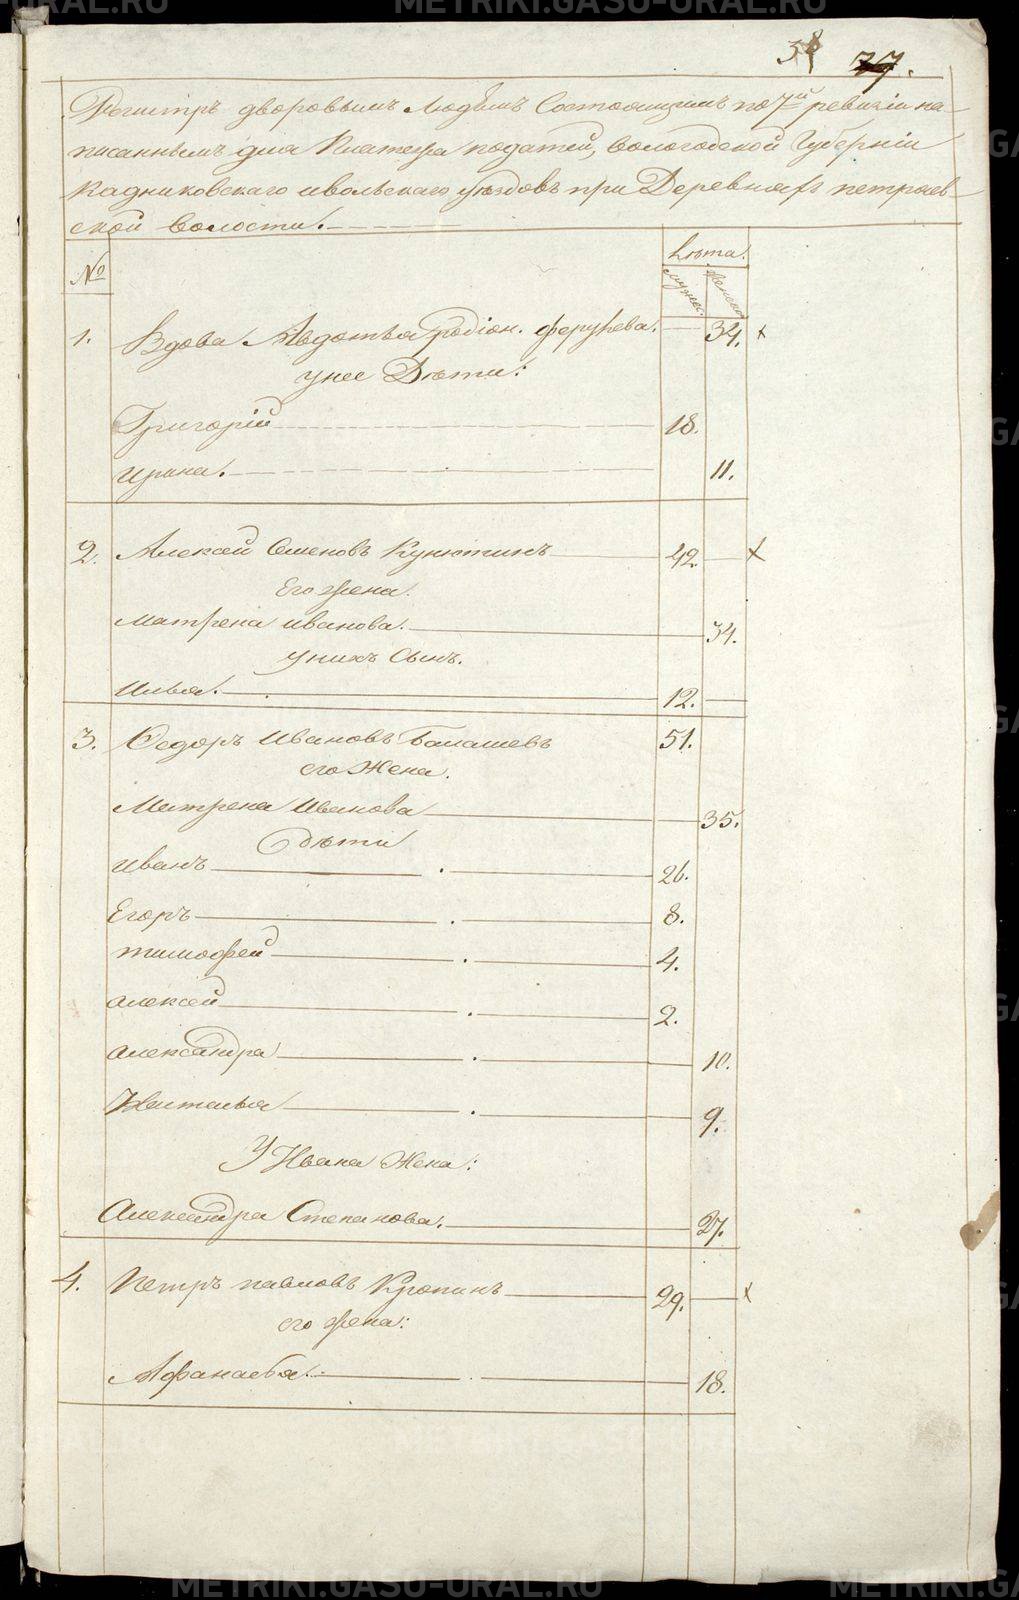 38 77.
Регистръ дворовымъ Людямъ Состоящимъ по 7й ревизіи на-
писаннымъ для Платежа податей, Вологодской Губерніи
Кадниковскаго ивольскаго уѣздовъ при Деревняхъ петраев-
ской волости.
№ Лѣта.
мужес. женска.
1. Вдова Авдотья родіон. 34. х
унее Дѣти:
Григорій 18.
ирина. 11.
2. Алексѣй Семеновъ Кунютинъ 42. х
Его жена.
матрена иванова. 34.
унихъ Сынъ.
илья. 12.
3. Ѳедоръ Ивановъ Балашевъ 51.
его Жена.
Матрена Иванова 35.
дѣти
иванъ 26.
Егоръ 8.
тимофей 4.
алексѣй 2.
александра 10.
Наталья 9.
У Ивана Жена:
Александра Степанова. 27.
4. Петръ павловъ Кропинъ 29. х
его жена:
18.
METRIKI.GASU-URAL.RU